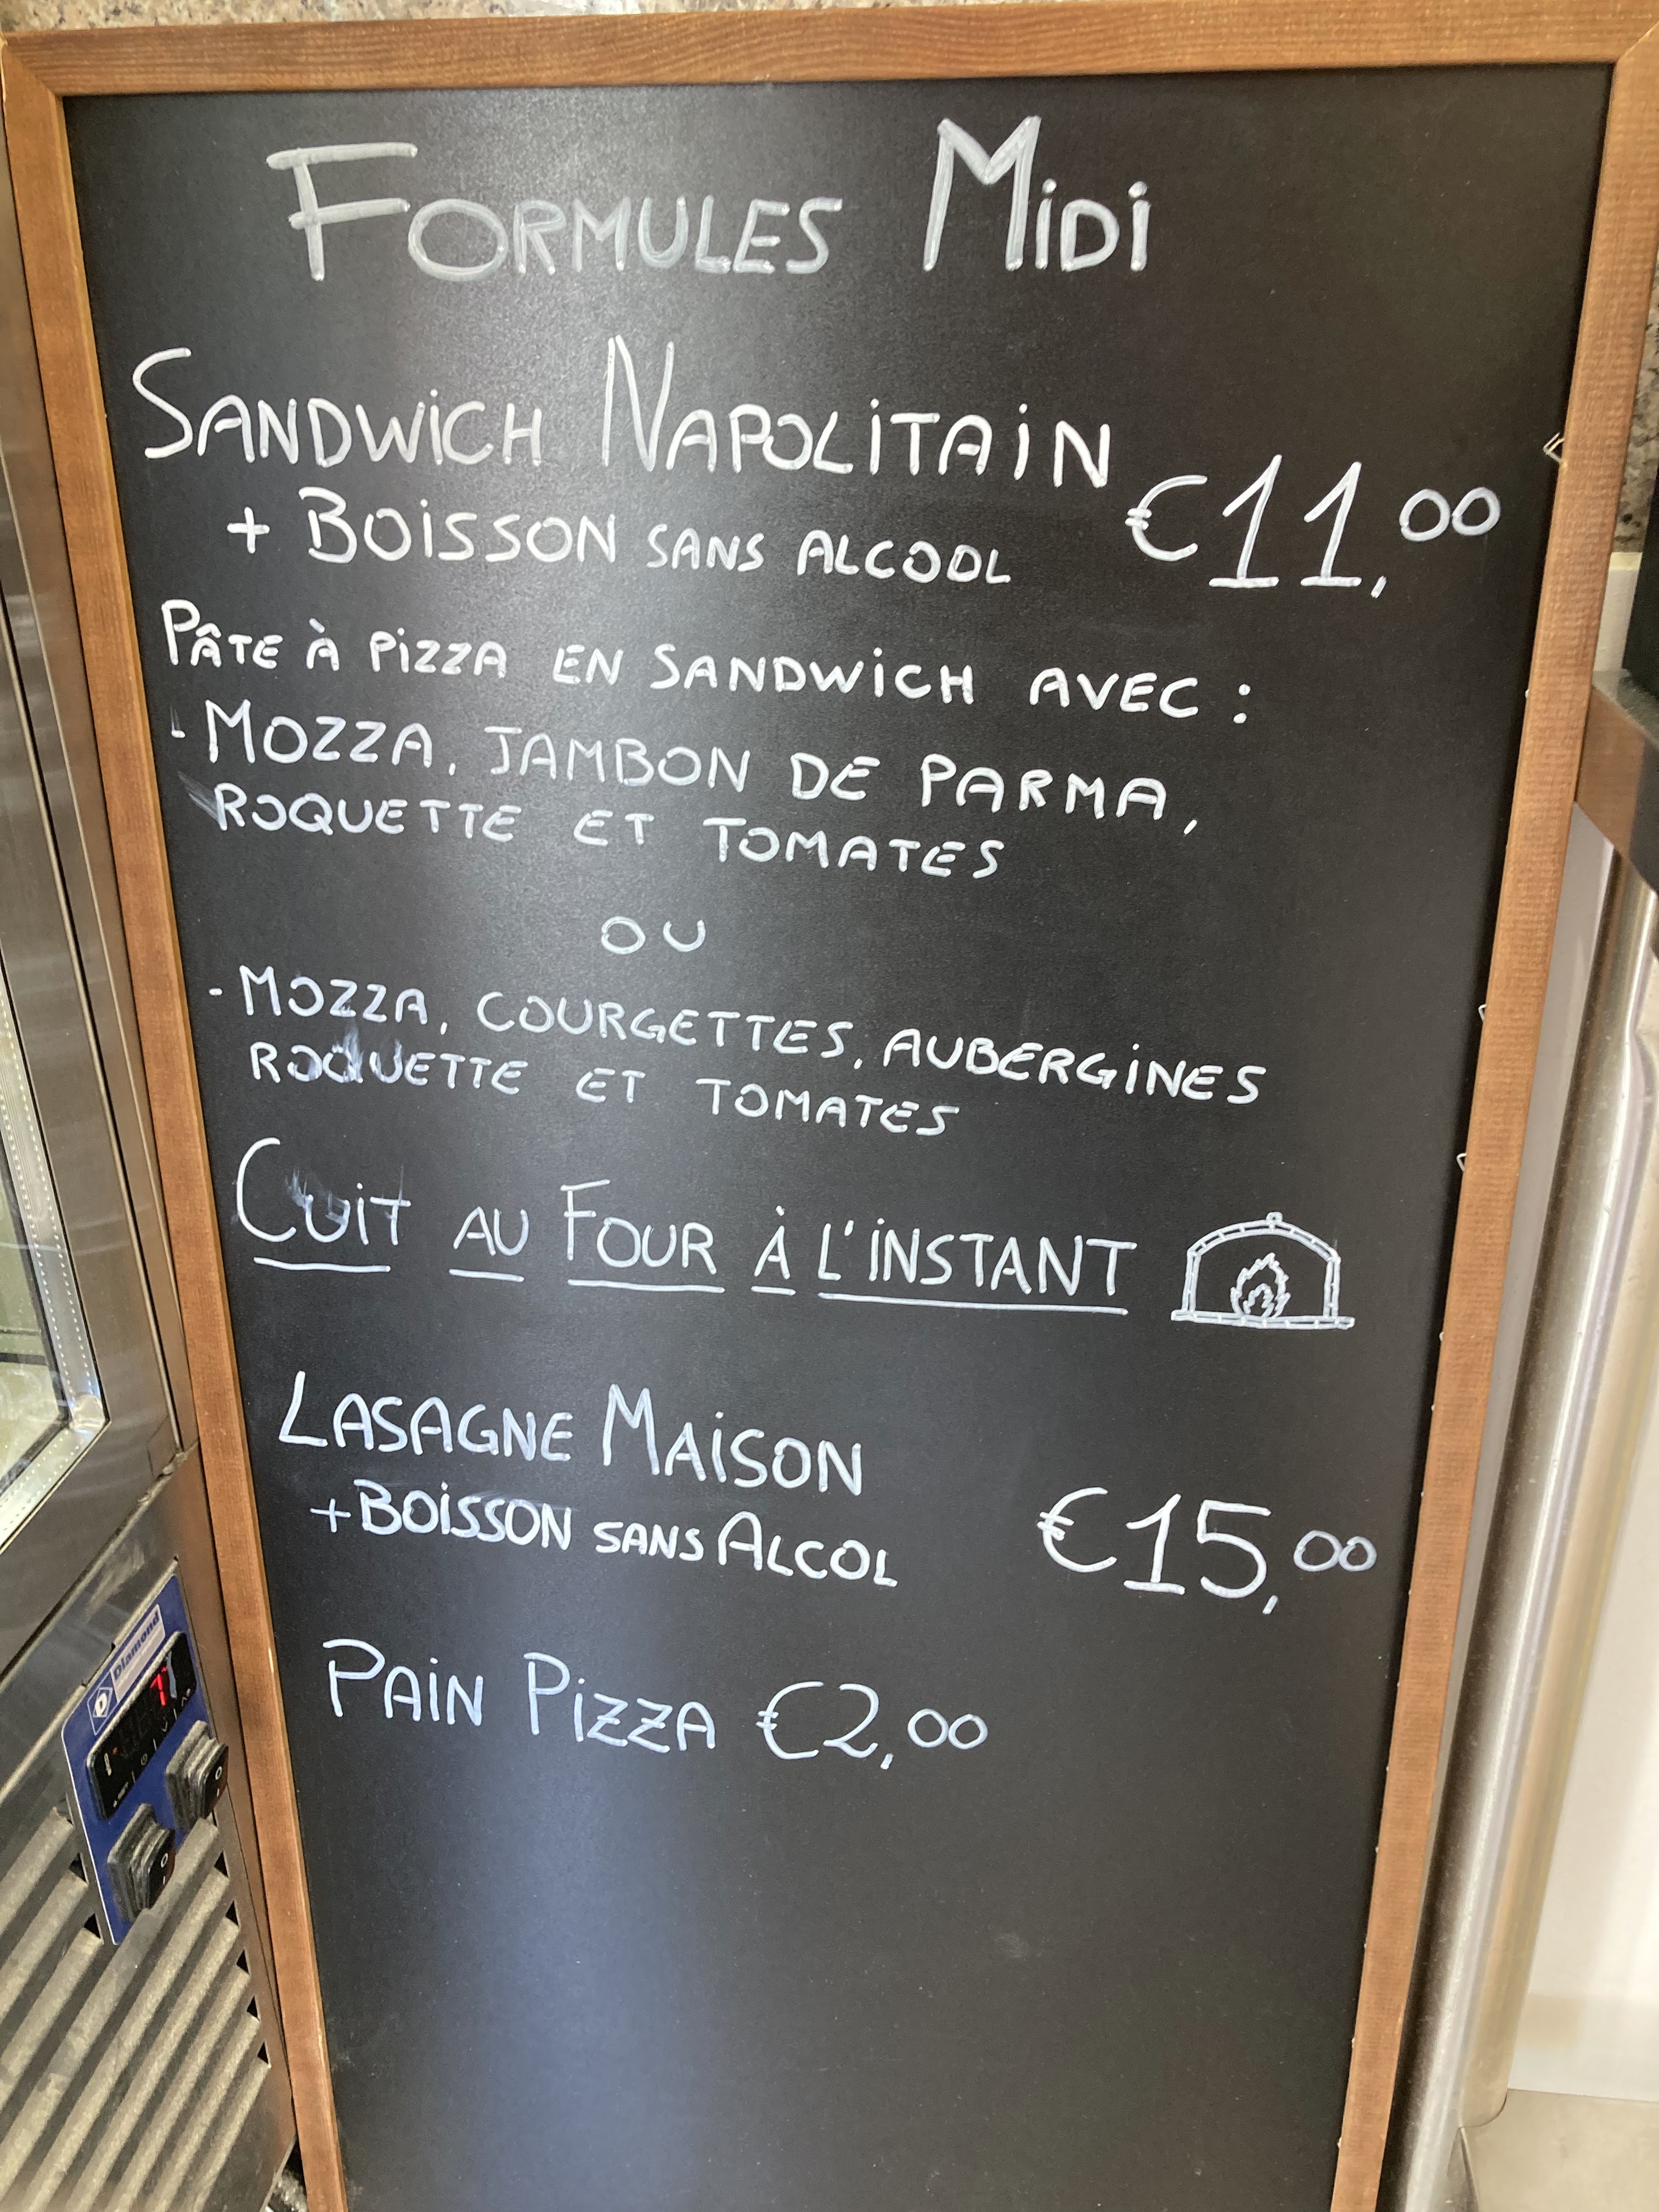 FORMULES MIDI
SANDWICH NAPOLITAIN
+ BOISSON SANS ALCOOL €11,00
PÂTE À PIZZA EN SANDWICH AVEC :
- MOZZA, JAMBON DE PARMA,
ROQUETTE ET TOMATES
OU
- MOZZA, COURGETTES, AUBERGINES
ROQUETTE ET TOMATES
CUIT AU FOUR À L'INSTANT
LASAGNE MAISON
+ BOISSON SANS ALCOL €15,00
PAIN PIZZA €2,00
Diamond